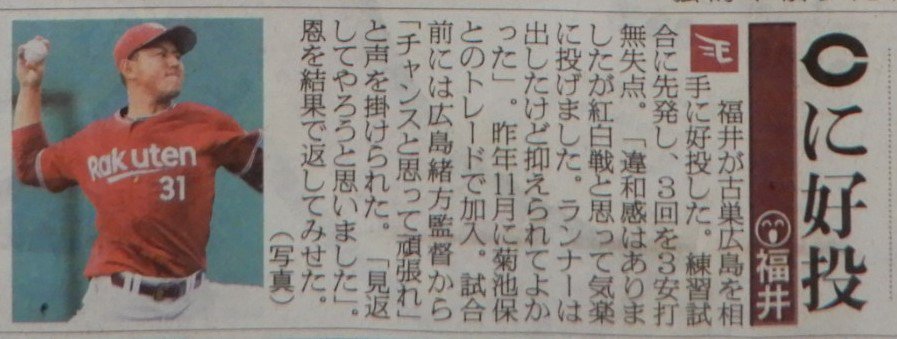 に好投
福井
福井が古巣広島を相
手に好投した。練習試
合に先発し、3回を3安打
無失点。「違和感はありま
したが紅白戦と思って気楽
に投げました。ランナーは
出したけど抑えられてよか
った」。昨年11月に菊池保
とのトレードで加入。試合
前には広島緒方監督から
「チャンスと思って頑張れ」
と声を掛けられた。「見返
してやろうと思いました」。
恩を結果で返してみせた。
(写真)
Rakuten
31